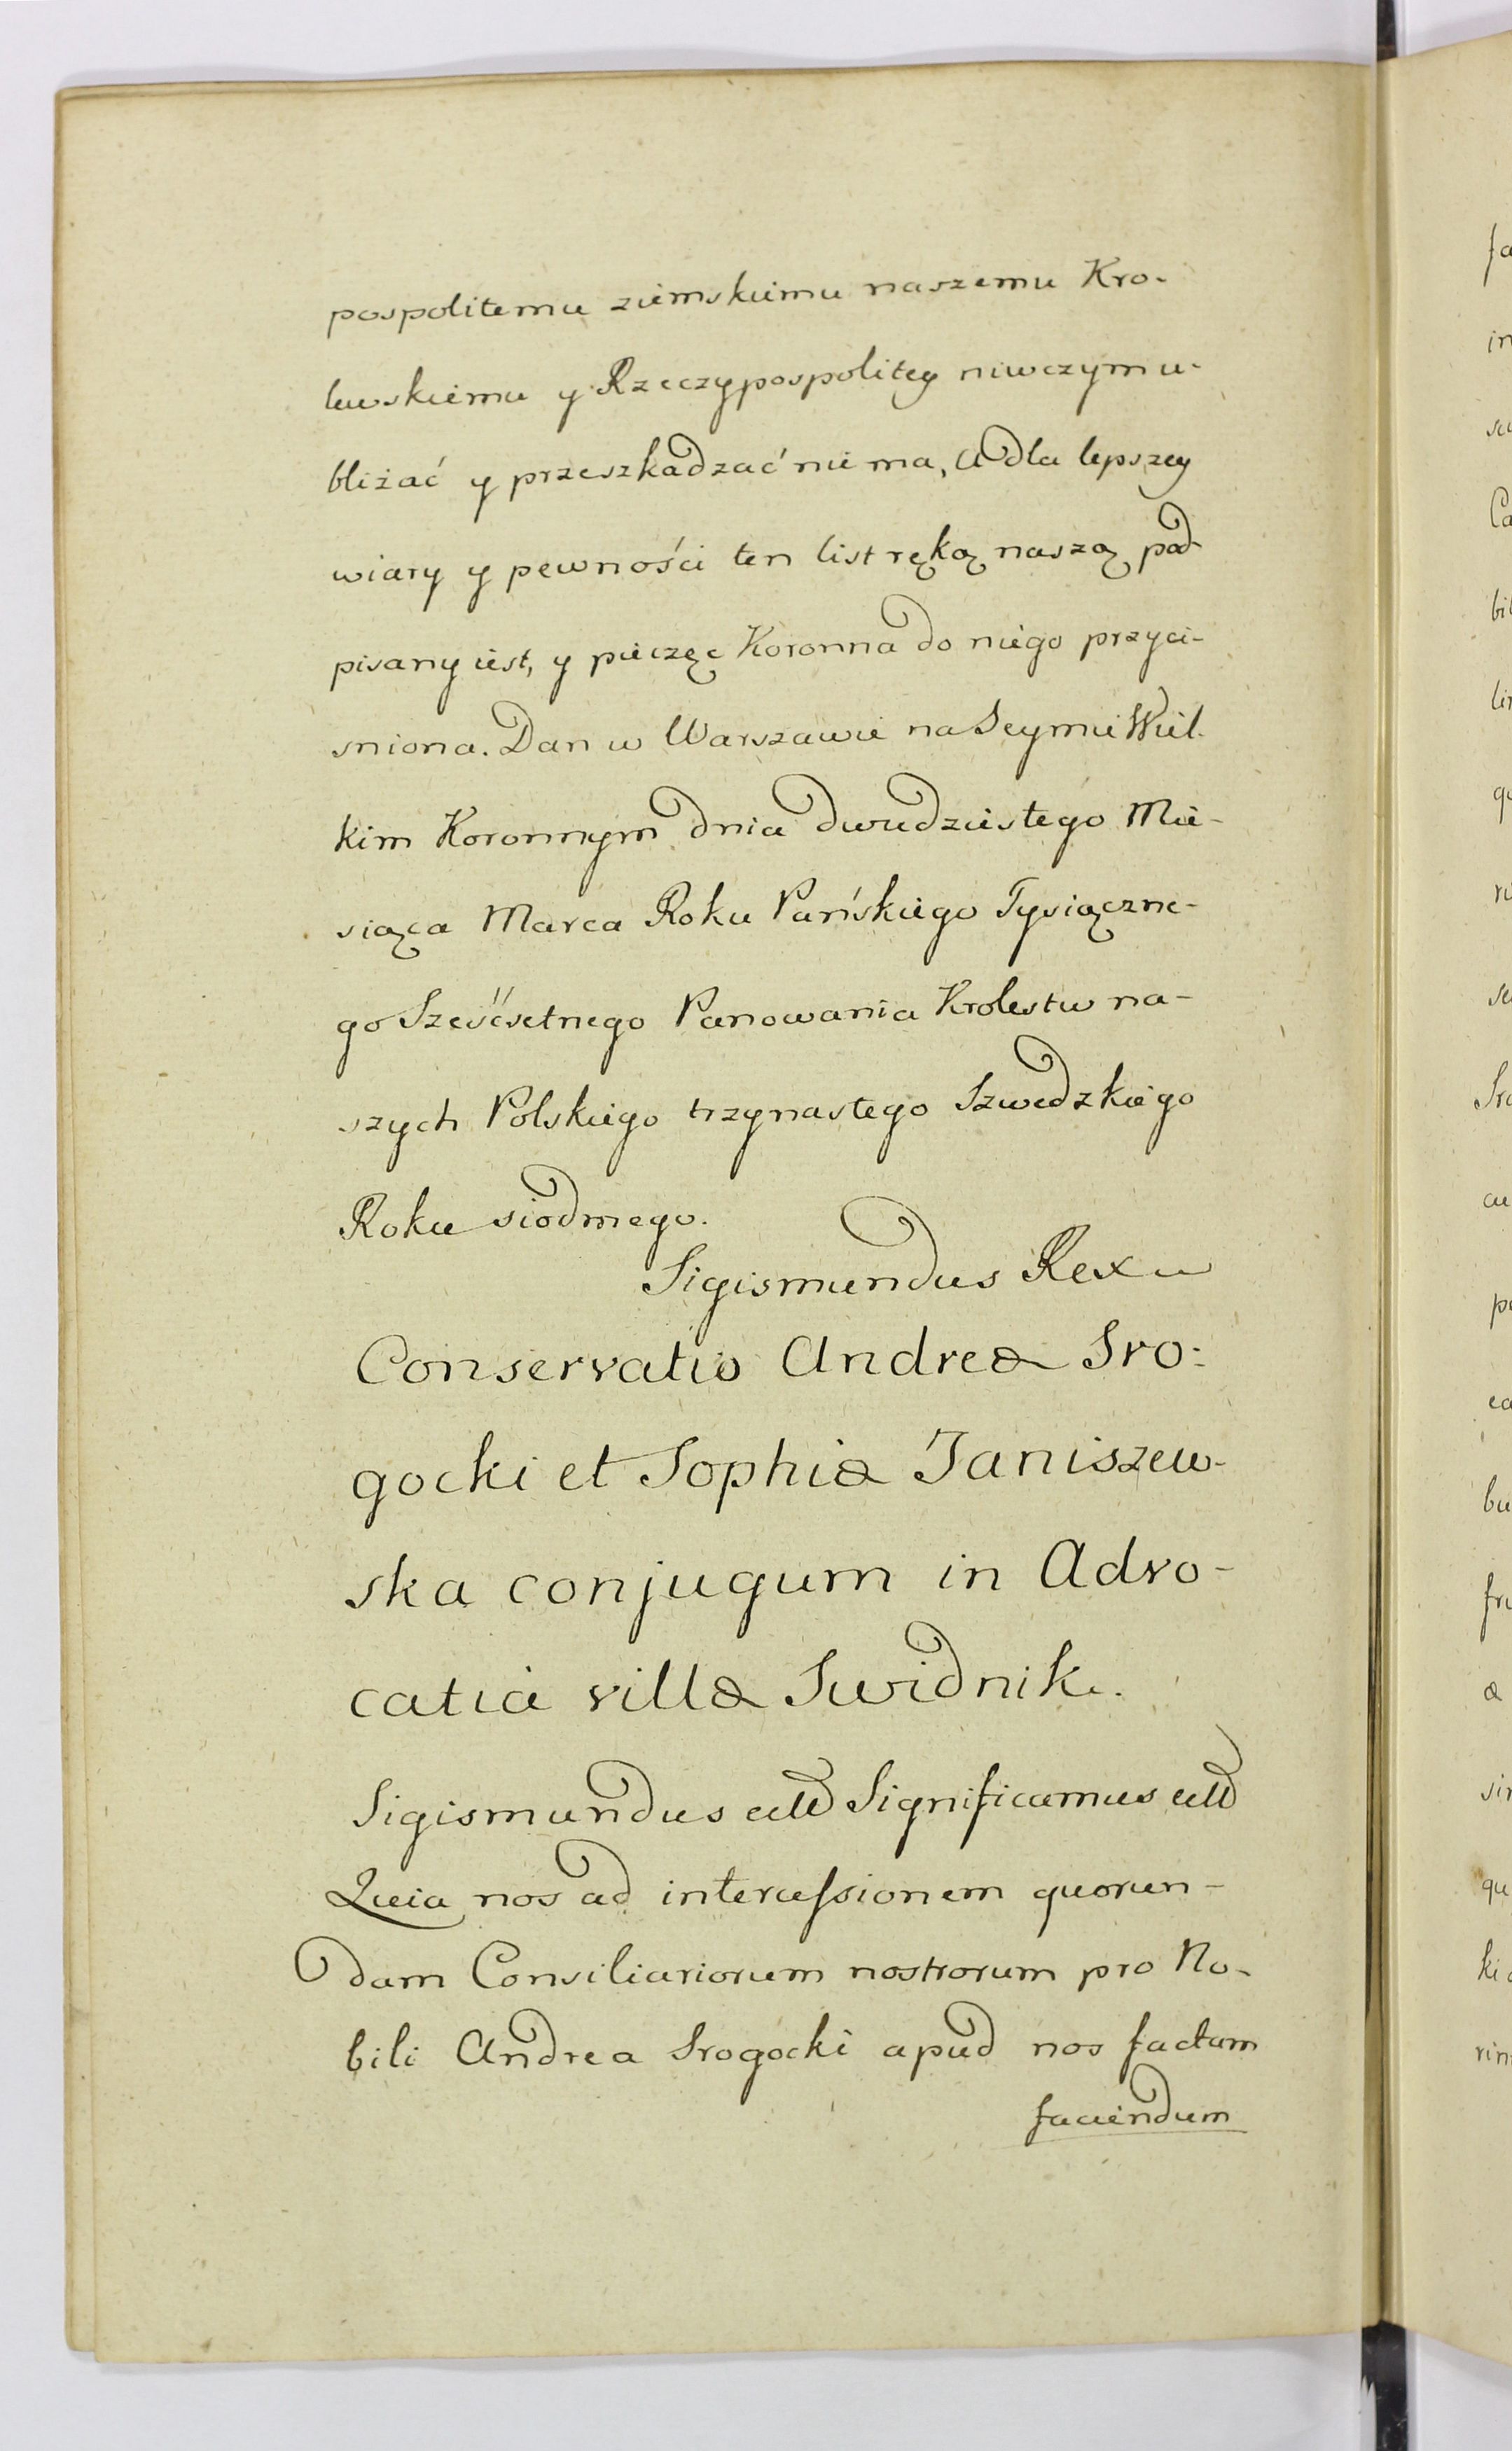 pospolitemu ziemskiemu naszemu Kro-
lewskiemu y Rzeczypospolitey niwczym u-
bliżać y przeszkadzać nie ma, A dla lepszey
wiary y pewności ten list ręką naszą pod-
pisany iest, y pieczęc Koronna do niego przyci-
sniona. Dan w Warszawie na Seymie Wiel-
kim Koronnym dnia dwudziestego Mie-
siąca Marca Roku Pańskiego Tysiączne-
go Sześćsetnego Panowania Krolestw na-
szych Polskiego trzynastego Szwedzkiego
Roku siodmego.
Sigismundus Rex
Conservatio Andreæ Sro:
gocki et Sophiæ Janiszew-
ska conjugum in Advo-
catia villæ Swidnik.
Sigismundus etc Significamus etc
Quia nos ad intercessionem quorun-
dam Consiliariorum nostrorum pro No-
bili Andrea Srogocki apud nos factam
faciendum
fa
in
Ca
bil
lin
qu
Sro
cu
ea
bu
fru
æ
sin
qu
ki
rin